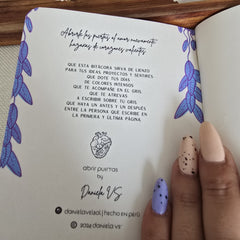 Abriste las puertas al amor nuevamente,
hagamos de corazones valientes.
QUE ESTA BITÁCORA SIRVA DE LIENZO
PARA TUS IDEAS PROYECTOS Y SENTIRES
QUE DOTE TUS DÍAS
DE COLORES INTENSOS
QUE TE ACOMPAÑE EN EL GRIS,
QUE TE ATREVAS
A ESCRIBIR SOBRE TU GRIS
QUE HAYA UN ANTES Y UN DESPUÉS
ENTRE LA PERSONA QUE ESCRIBE EN
LA PRIMERA Y ÚLTIMA PÁGINA.
abrir puertas
by
Daniela VS
danielavelsal | hecho en perú
2024 daniela vs